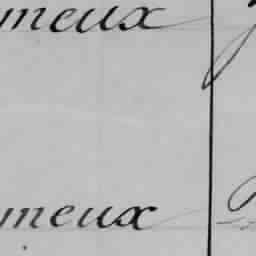 meux
meux